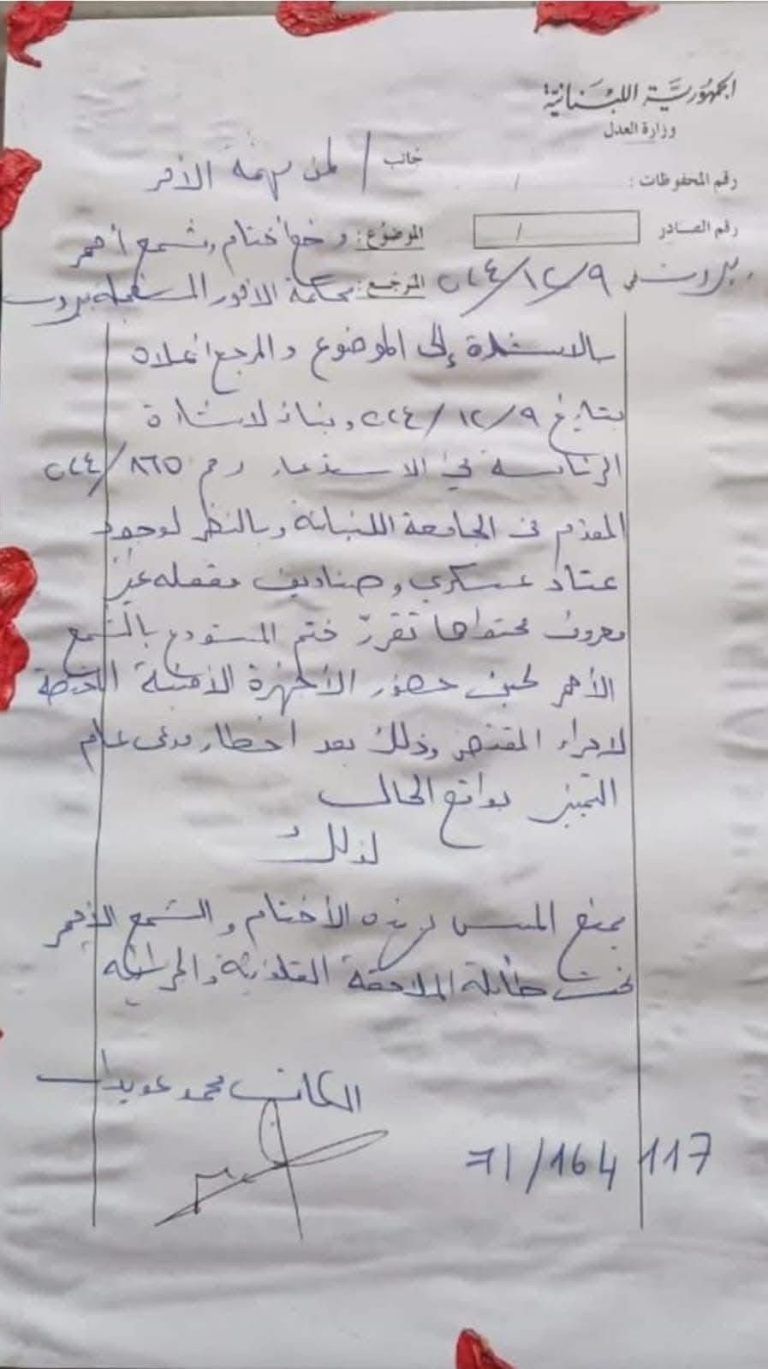 الجمهورية اللبنانية
وزارة العدل
رقم المحفوظات : /
جانب / لمن يهمه الأمر
رقم الصادر /
الموضوع: وضع أختام وشمع أحمر
بيروت في ٩/١٢/٢٠٢٤
المرجع: محكمة الامور المستعجلة بيروت
بالاستنادة إلى الموضوع والمرجع أعلاه
بتاريخ ٩/١٢/٢٠٢٤ وبناء لاشارة
الرئاسة في الاستدعاء رقم ٨٦٥/٢٠٢٤
المقدم في الجامعة اللبنانية وبالنظر لوجود
عتاد عسكري وصناديق مقفله غير
معروف محتواها تقرر ختم المستودع بالشمع
الأحمر لحين حضور الأجهزة الأمنية المختصة
لاجراء المقتضى وذلك بعد اخطار مدعي عام
التمييز بواقع الحال
لذلك
يمنع المس بهذه الأختام والشمع الأحمر
تحت طائلة الملاحقة القانونية والجزائية
الكاتب محمد عويدات
71/164 117